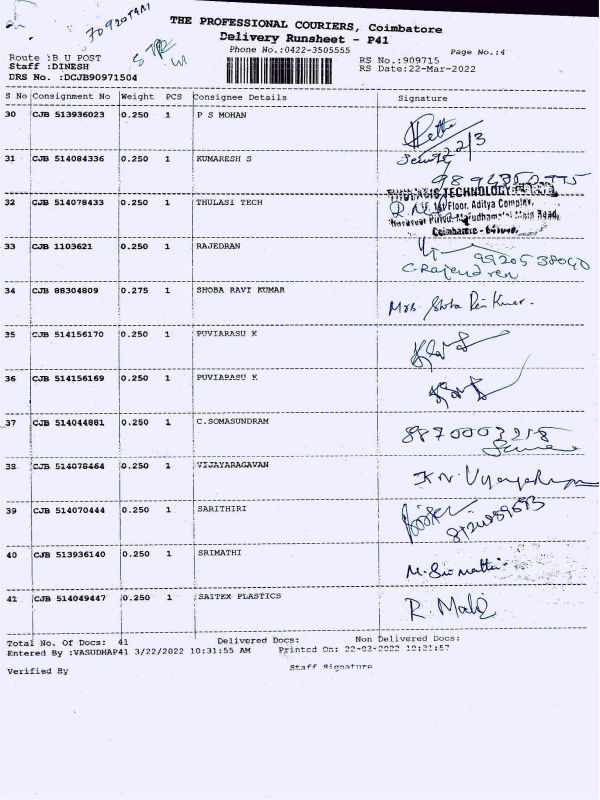 THE PROFESSIONAL COURIERS, Coimbatore
Delivery Runsheet - P41
Phone No.:0422-3505555
Page No.:4
Route :B U POST
Staff :DINESH
DRS No. :DCJB90971504
RS No.:909715
RS Date:22-Mar-2022
S No Consignment No Weight PCS Consignee Details Signature
30 CJB 513936023 0.250 1 P S MOHAN
22/3
31 CJB 514084336 0.250 1 KUMARESH S
32 CJB 514078433 0.250 1 THULASI TECH
TECHNOLOGY
Floor, Aditya Complex,
Main Road,
Coimbatore
33 CJB 1103621 0.250 1 RAJEDRAN
C.Rajendren
34 CJB 88304809 0.275 1 SHOBA RAVI KUMAR Mrs. Shoba Ravi Kumar.
35 CJB 514156170 0.250 1 PUVIARASU K
36 CJB 514156169 0.250 1 PUVIARASU K
37 CJB 514044881 0.250 1 C.SOMASUNDRAM
8870003218
38 CJB 514078464 0.250 1 VIJAYARAGAVAN
39 CJB 514070444 0.250 1 SARITHIRI
40 CJB 513936140 0.250 1 SRIMATHI M.Srimathi
41 CJB 514049447 0.250 1 SAITEX PLASTICS R. Malq
Total No. Of Docs: 41 Delivered Docs: Non Delivered Docs:
Entered By :VASUDHAP41 3/22/2022 10:31:55 AM Printed On: 22-03-2022
Verified By Staff Signature